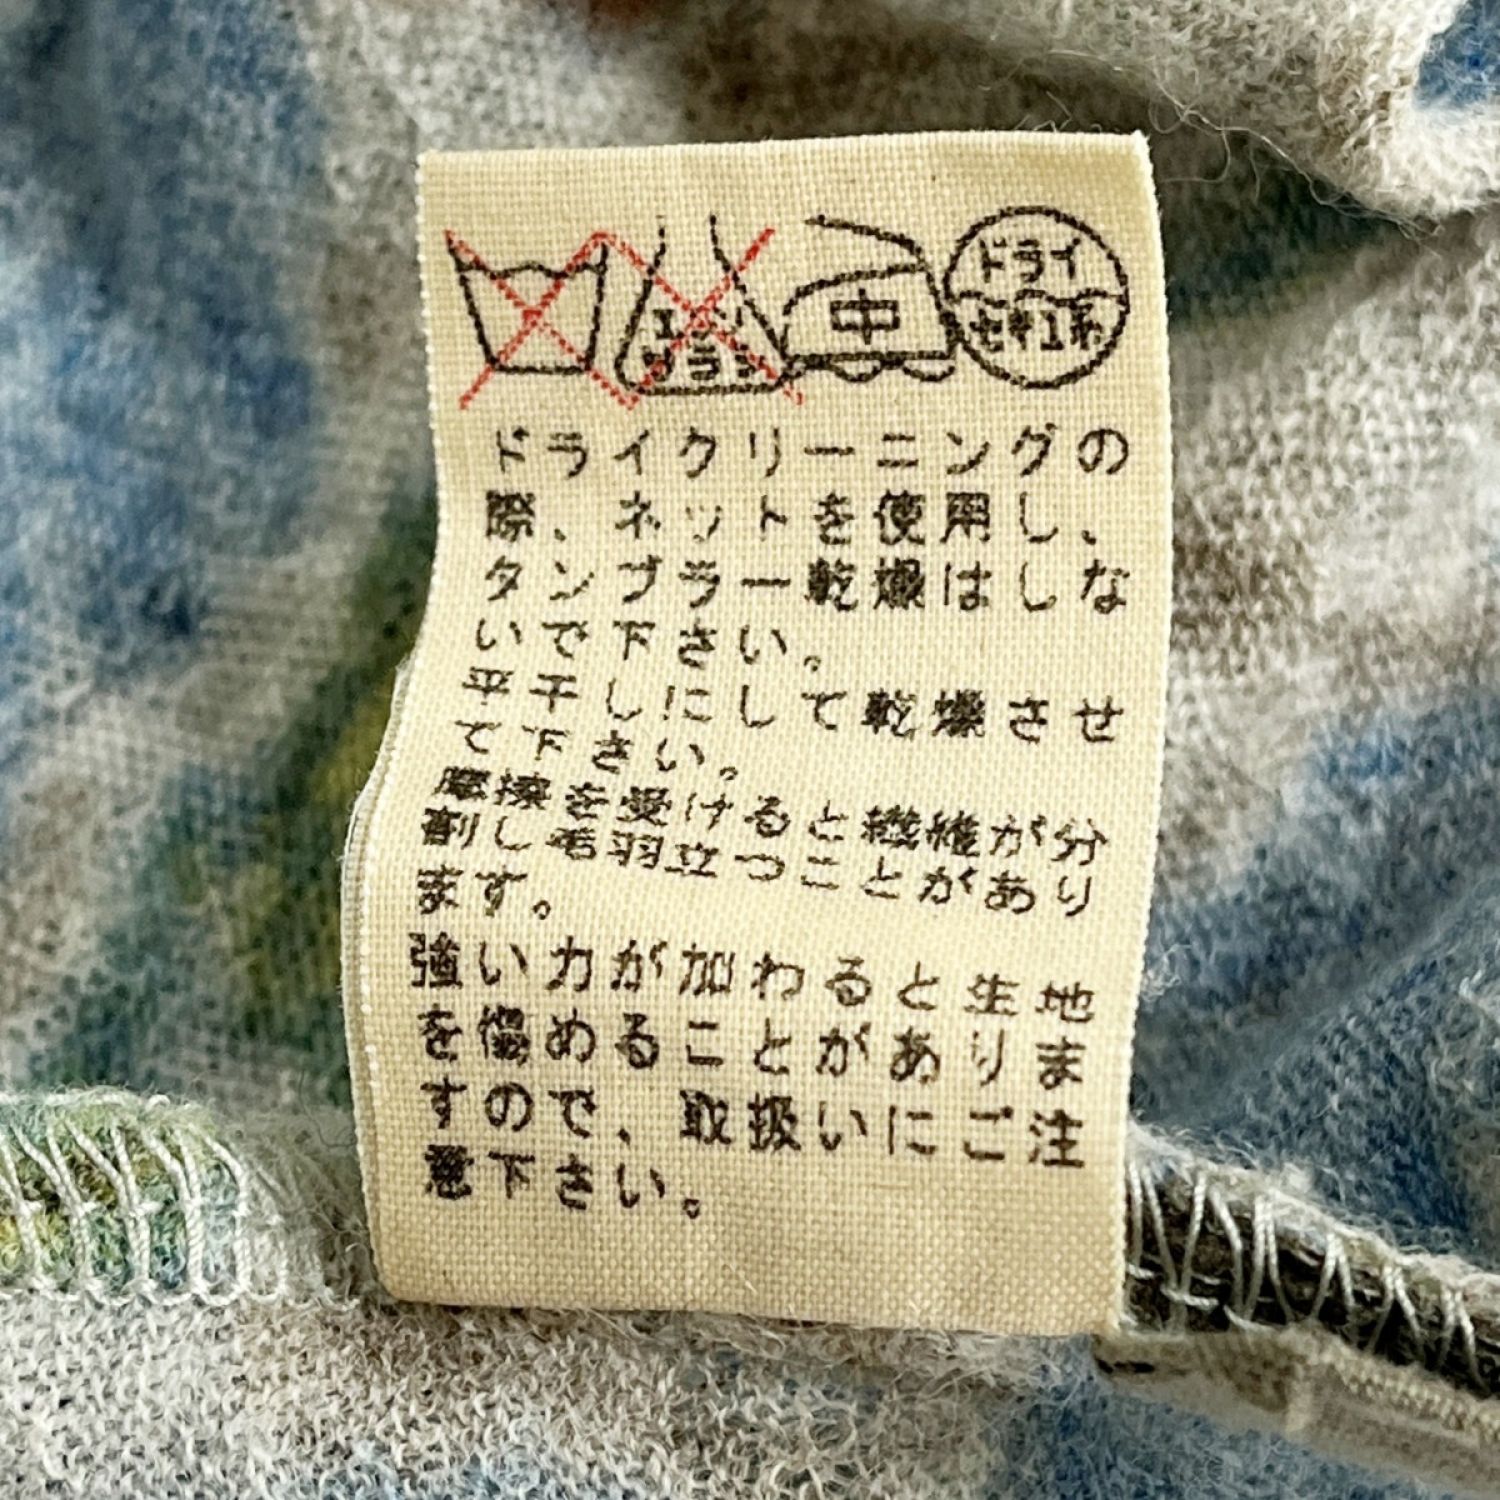 エンソ
サラシ
中
ドライ
セキユ系
ドライクリーニングの
際、ネットを使用し、
タンブラー乾燥はしな
いで下さい。
平干しにして乾燥させ
て下さい。
摩擦を受けると繊維が分
割し毛羽立つことがあり
ます。
強い力が加わると生地
を傷めることがありま
すので、取扱いにご注
意下さい。